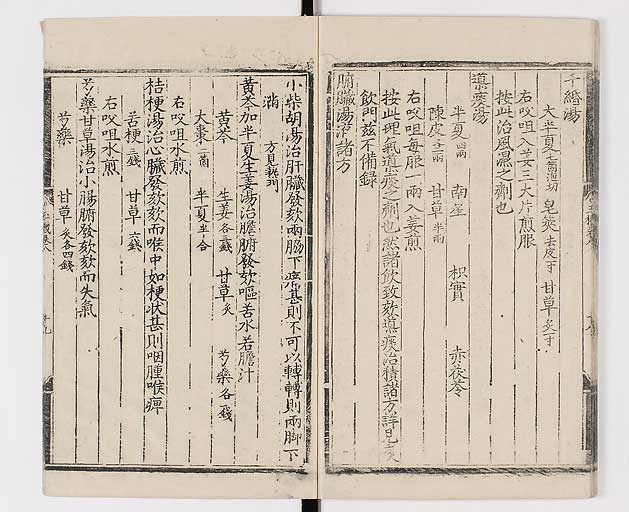 千緡湯
大半夏 皂莢 去皮 甘草 炙
右㕮咀入姜三大片煎服
按此治風濕之劑也
導痰湯
半夏 四兩 南星 枳實 赤茯苓
陳皮 甘草 半兩
右㕮咀每服一兩入姜煎
按此理氣導痰之劑也然諸飲致欬導痰治積諸方詳見
飲門茲不備錄
腑臟湯治諸方
小柴胡湯治肝臟發欬兩脇下痛甚則不可以轉轉則兩脚下
滿 方見熱門
黃芩加半夏生姜湯治膽腑發欬嘔苦水若膽汁
黃芩 生姜 各三錢 甘草 炙 芍藥 各二錢
大棗 二箇 半夏 半合
右㕮咀水煎
桔梗湯治心臟發欬欬而喉中如梗狀甚則咽腫喉痺
苦梗 三錢 甘草 六錢
右㕮咀水煎
芍藥甘草湯治小腸腑發欬欬而失氣
芍藥 甘草 炙各四錢